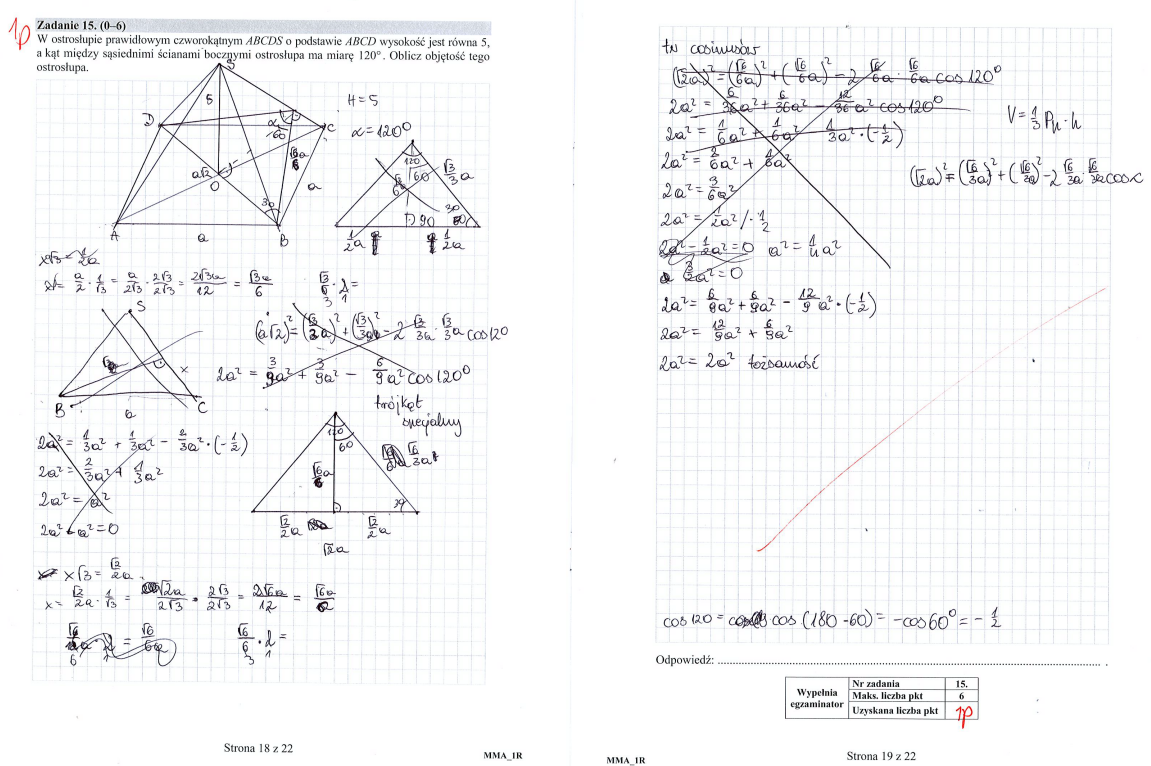 1p
Zadanie 15. (0–6)
W ostrosłupie prawidłowym czworokątnym ABCDS o podstawie ABCD wysokość jest równa 5,
a kąt między sąsiednimi ścianami bocznymi ostrosłupa ma miarę 120°. Oblicz objętość tego
ostrosłupa.
S
5
H = 5
D
C
α = 120°
α
60
√6/6 a
a√2
O
a
30
A
a
B
120
60
√3/3 a
90
30
1/2 a
1/2 a
x√3 = 1/2 a
x = a/2 · 1/√3 = a/2√3 · 2√3/2√3 = 2√3a/12 = √3a/6
S
x
B
a
C
(a√2)² = (√3/3 a)² + (√3/3 a)² - 2 √3/3 a · √3/3 a cos120
2a² = 3/9 a² + 3/9 a² - 6/9 a² cos120°
trójkąt
specjalny
2a² = 1/3 a² + 1/3 a² - 2/3 a² · (-1/2)
2a² = 2/3 a² + 1/3 a²
2a² = a²
2a² - a² = 0
120
60
√6/6 a
√6/3 a
√2/2 a
√2/2 a
√2a
x√3 = √2/2 a
x = √2/2 a · 1/√3 = √2a/2√3 · 2√3/2√3 = 2√6a/12 = √6a/6
√6/6 · 2/1 =
tw cosinusów
(√2a)² = (√6/6 a)² + (√6/6 a)² - 2 √6/6 a · √6/6 a cos120°
2a² = 6/36 a² + 6/36 a² - 12/36 a² cos120°
2a² = 1/6 a² + 1/6 a² - 1/3 a² · (-1/2)
2a² = 2/6 a² + 1/6 a²
2a² = 3/6 a²
2a² = 1/2 a² /· 1/2
2a² - 1/2 a² = 0 a² = 1/4 a²
3/2 a² = 0
V = 1/3 Pp · h
(√2a)² = (√6/3 a)² + (√6/3 a)² - 2 √6/3 a · √6/3 a cosα
2a² = 6/9 a² + 6/9 a² - 12/9 a² · (-1/2)
2a² = 12/9 a² + 6/9 a²
2a² = 2a² tożsamość
cos120 = cos (180 - 60) = -cos60° = - 1/2
Odpowiedź:
Wypełnia
egzaminator
Nr zadania 15.
Maks. liczba pkt 6
Uzyskana liczba pkt 1p
Strona 18 z 22
MMA_1R
MMA_1R
Strona 19 z 22